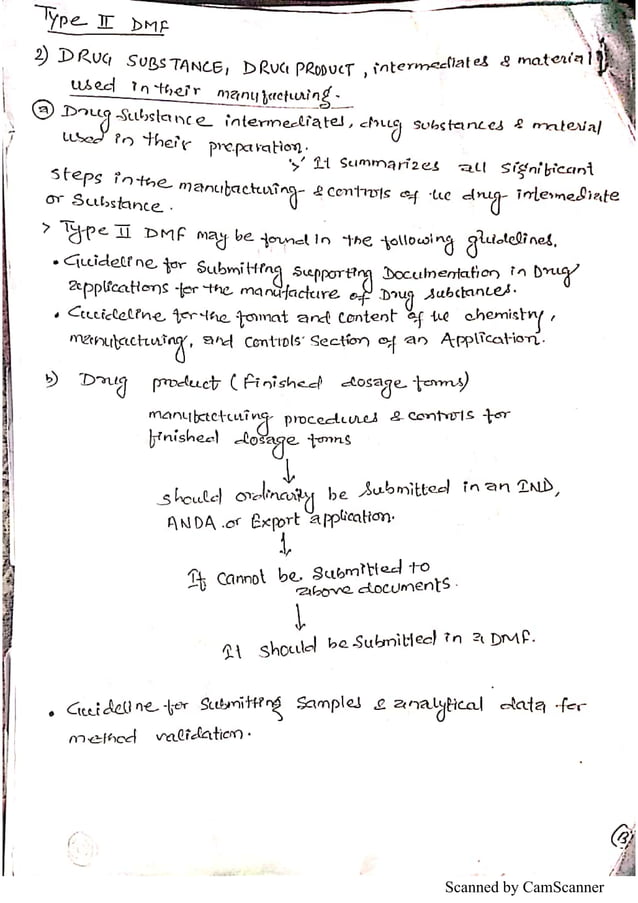 Type II DMF
2) DRUG SUBSTANCE, DRUG PRODUCT, intermediates & material
used in their manufacturing.
(a) Drug substance intermediates, drug substances & material
used in their preparation.
> It summarizes all significant
steps in the manufacturing & controls of the drug intermediate
or Substance.
> Type II DMF may be found in the following guidelines.
• Guideline for Submitting Supporting Documentation in Drug
applications for the manufacture of Drug substances.
• Guideline for the format and content of the chemistry,
manufacturing, and controls section of an Application.
b) Drug product (finished dosage forms)
manufacturing procedures & controls for
finished dosage forms
↓
should ordinarity be submitted in an IND,
ANDA or Export application.
↓
If cannot be submitted to
above documents.
↓
It should be submitted in a DMF.
• Guideline for submitting samples & analytical data for
method validation.
Scanned by CamScanner